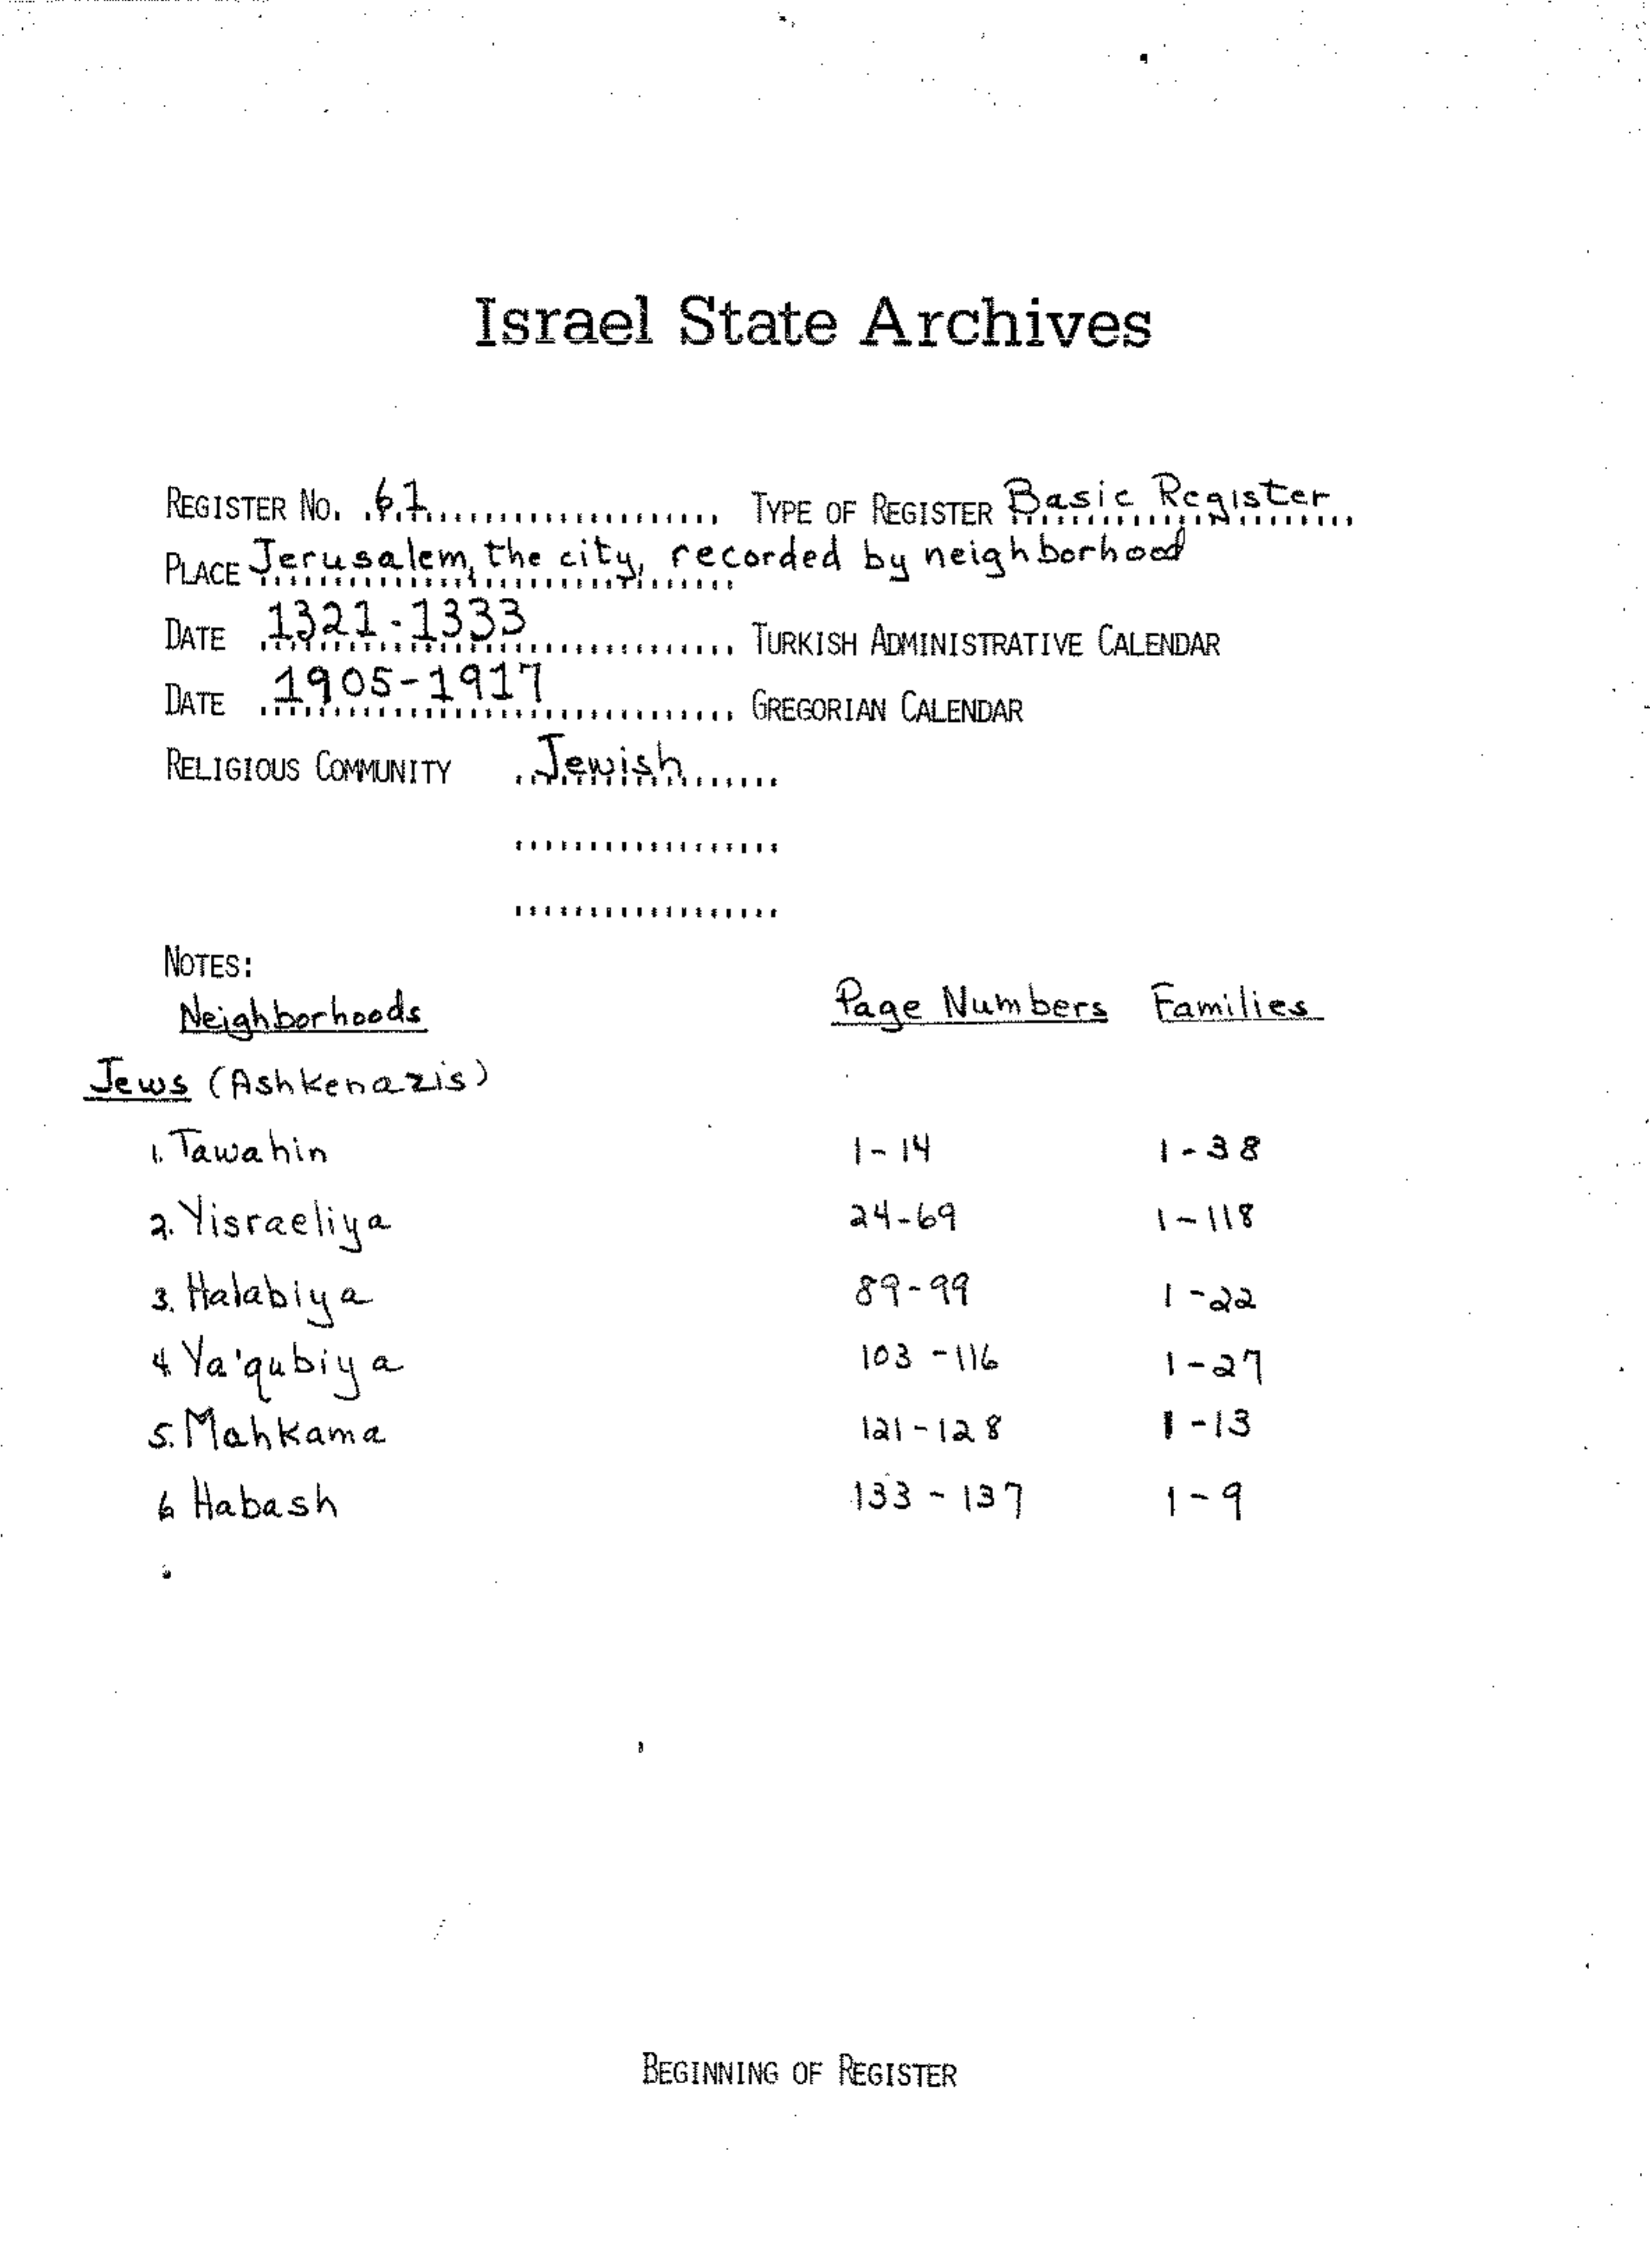 Israel State Archives
REGISTER No. 61 TYPE OF REGISTER Basic Register
PLACE Jerusalem, the city, recorded by neighborhood
DATE 1321-1333 TURKISH ADMINISTRATIVE CALENDAR
DATE 1905-1917 GREGORIAN CALENDAR
RELIGIOUS COMMUNITY Jewish
NOTES:
Neighborhoods Page Numbers Families
Jews (Ashkenazis)
1. Tawahin 1-14 1-38
2. Yisraeliya 24-69 1-118
3. Halabiya 89-99 1-22
4. Ya'qubiya 103-116 1-27
5. Mahkama 121-128 1-13
6 Habash 133-137 1-9
BEGINNING OF REGISTER